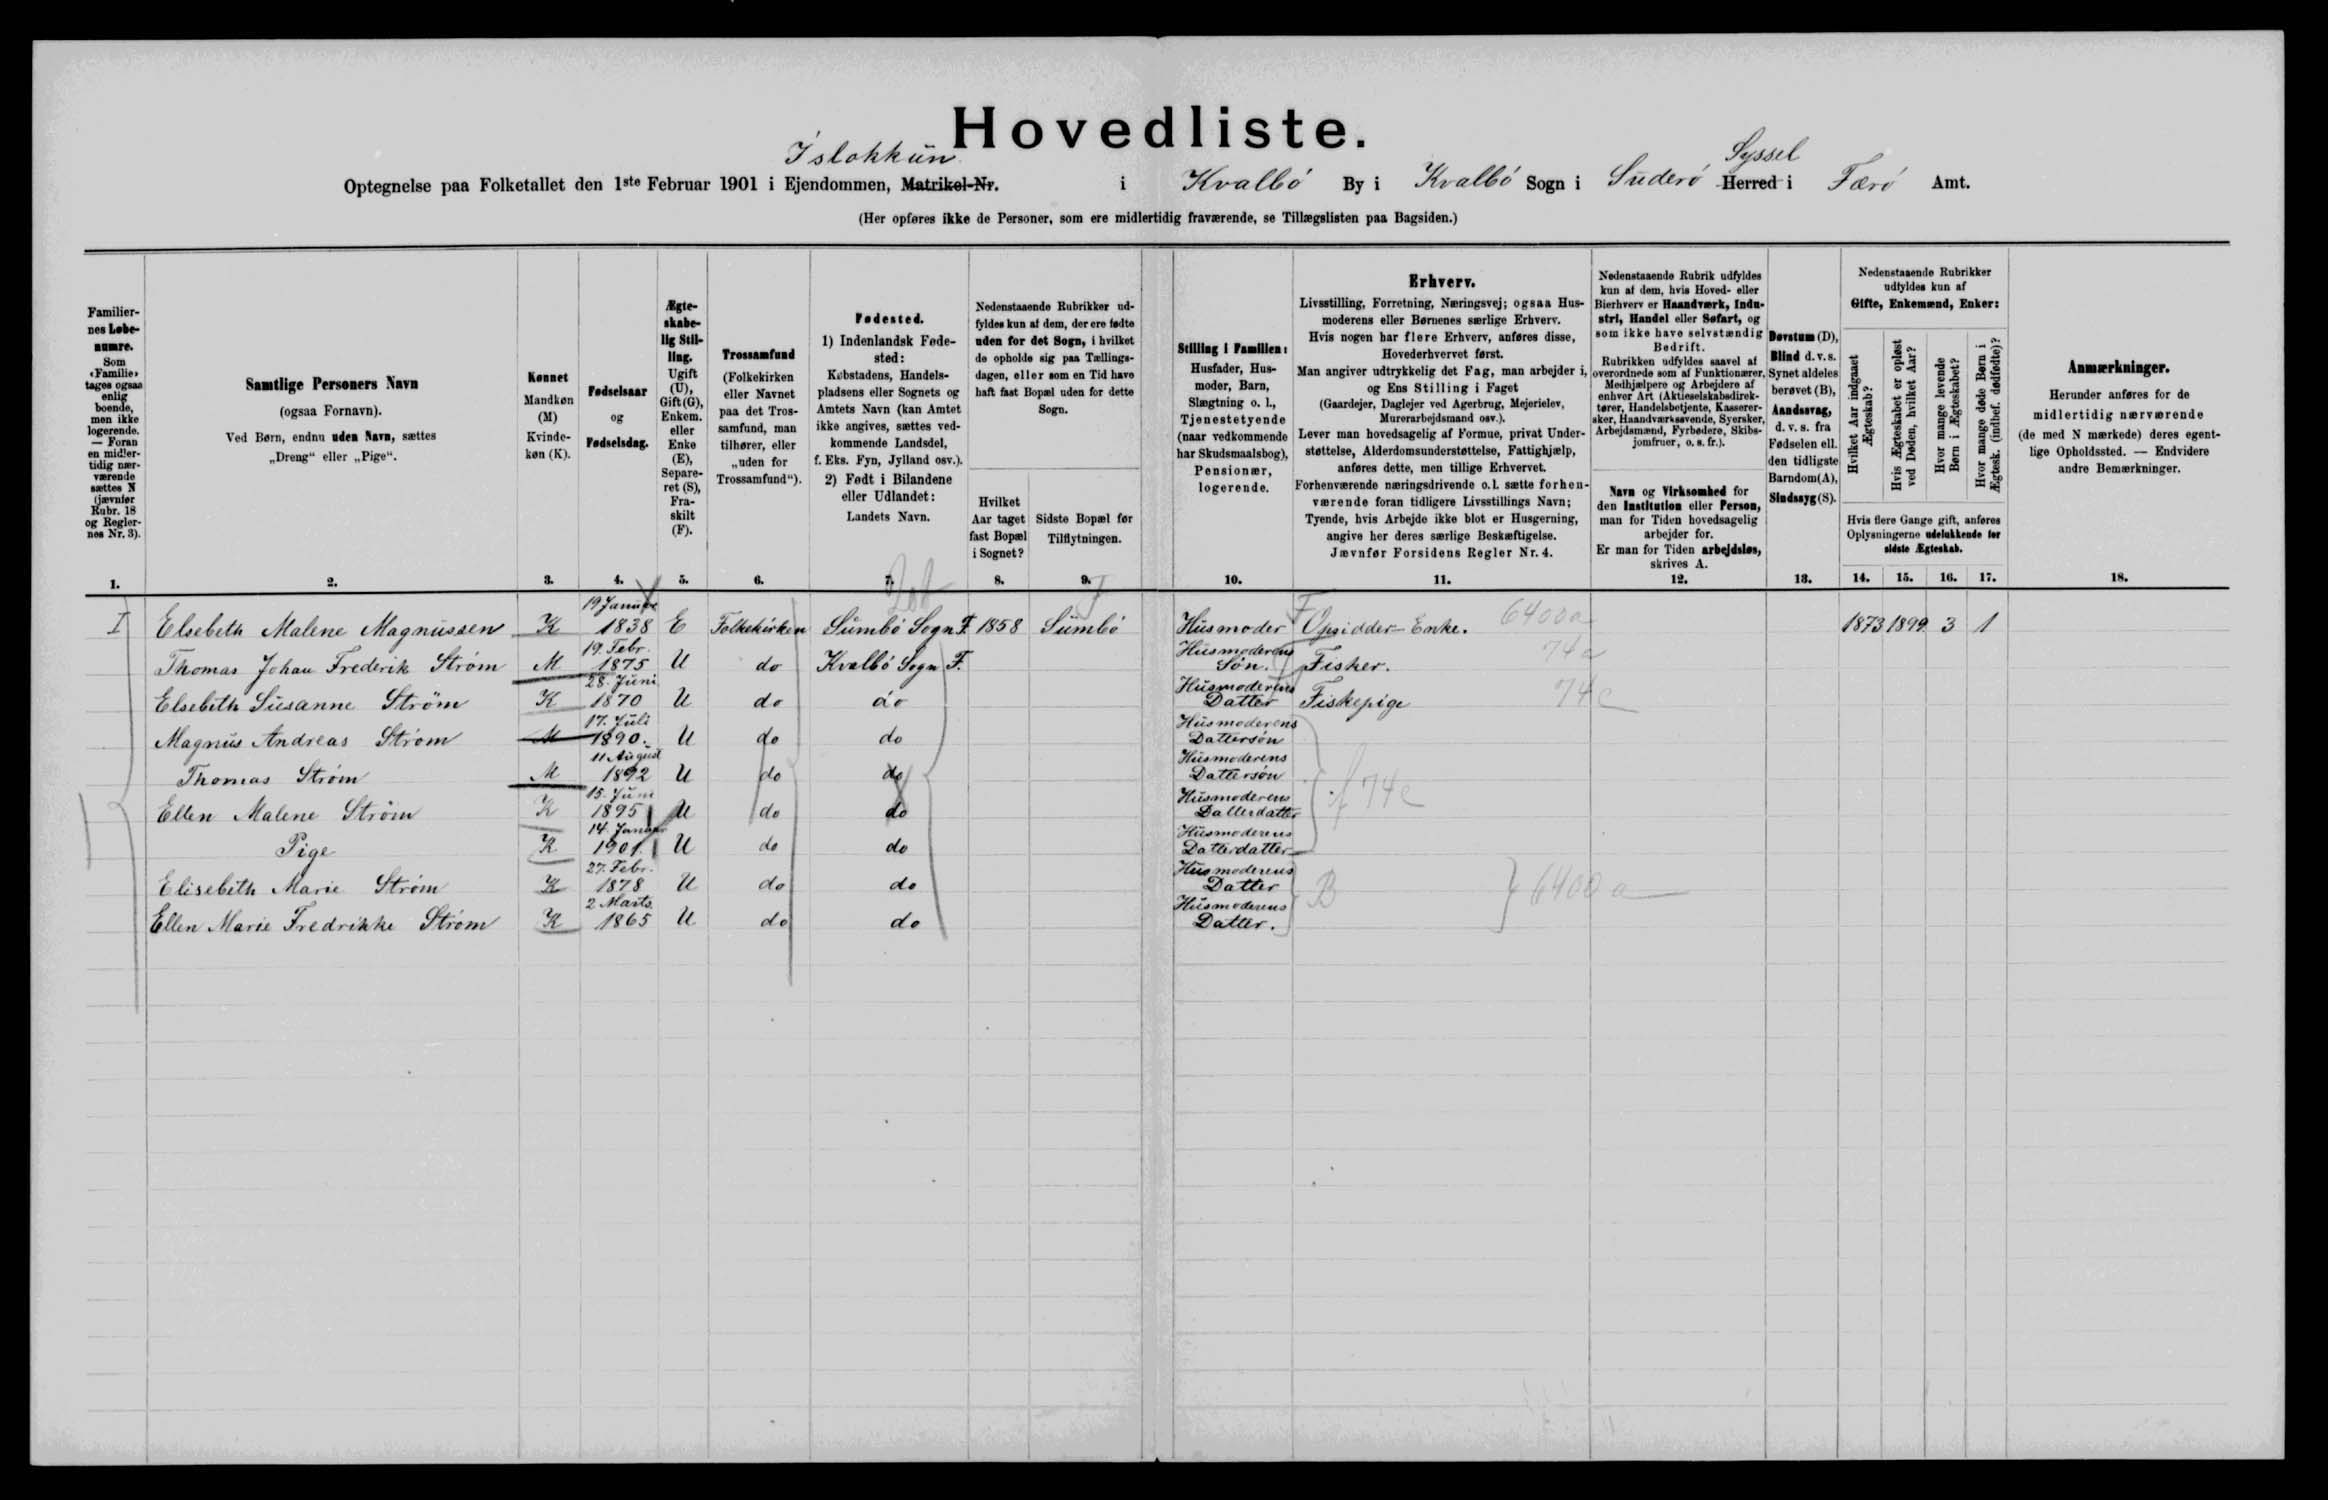 Hovedliste.
Islokkun Syssel
Optegnelse paa Folketallet den 1ste Februar 1901 i Ejendommen, Matrikel-Nr. i Kvalbø By i Kvalbø Sogn i Suderø Herred i Færø Amt.
(Her opføres ikke de Personer, som ere midlertidig fraværende, se Tillægslisten paa Bagsiden.)
Familiernes Løbenumre.
Som «Familie» tages ogsaa enlig boende, men ikke logerende. — Foran en midlertidig nærværende sættes N (jævnfør Rubr. 18 og Reglernes Nr. 3).
Samtlige Personers Navn
(ogsaa Fornavn).
Ved Børn, endnu uden Navn, sættes
„Dreng“ eller „Pige“.
Kønnet
Mandkøn (M)
Kvindekøn (K).
Fødselsaar
og
Fødselsdag.
Ægteskabelig Stilling.
Ugift (U), Gift (G), Enkem. eller Enke (E), Separeret (S), Fraskilt (F).
Trossamfund
(Folkekirken eller Navnet paa det Trossamfund, man tilhører, eller „uden for Trossamfund“).
Fødested.
1) Indenlandsk Fødested:
Købstadens, Handelspladsens eller Sognets og Amtets Navn (kan Amtet ikke angives, sættes vedkommende Landsdel, f. Eks. Fyn, Jylland osv.).
2) Født i Bilandene eller Udlandet:
Landets Navn.
Nedenstaaende Rubrikker udfyldes kun af dem, der ere fødte uden for det Sogn, i hvilket de opholde sig paa Tællingsdagen, eller som en Tid have haft fast Bopæl uden for dette Sogn.
Hvilket Aar taget fast Bopæl i Sognet?
Sidste Bopæl før Tilflytningen.
Stilling i Familien:
Husfader, Husmoder, Barn, Slægtning o. l., Tjenestetyende (naar vedkommende har Skudsmaalsbog), Pensionær, logerende.
Erhverv.
Livsstilling, Forretning, Næringsvej; ogsaa Husmoderens eller Børnenes særlige Erhverv.
Hvis nogen har flere Erhverv, anføres disse, Hovederhvervet først.
Man angiver udtrykkelig det Fag, man arbejder i, og Ens Stilling i Faget
(Gaardejer, Daglejer ved Agerbrug, Mejerielev, Murerarbejdsmand osv.).
Lever man hovedsagelig af Formue, privat Understøttelse, Alderdomsunderstøttelse, Fattighjælp, anføres dette, men tillige Erhvervet.
Forhenværende næringsdrivende o. l. sætte forhenværende foran tidligere Livsstillings Navn;
Tyende, hvis Arbejde ikke blot er Husgerning, angive her deres særlige Beskæftigelse.
Jævnfør Forsidens Regler Nr. 4.
Nedenstaaende Rubrik udfyldes kun af dem, hvis Hoved- eller Bierhverv er Haandværk, Industri, Handel eller Søfart, og som ikke have selvstændig Bedrift.
Rubrikken udfyldes saavel af overordnede som af Funktionærer, Medhjælpere og Arbejdere af enhver Art (Aktieselskabsdirektører, Handelsbetjente, Kasserersker, Haandværkssvende, Syersker, Arbejdsmænd, Fyrbødere, Skibsjomfruer, o. s. fr.).
Navn og Virksomhed for den Institution eller Person, man for Tiden hovedsagelig arbejder for.
Er man for Tiden arbejdsløs, skrives A.
Døvstum (D),
Blind d. v. s. Synet aldeles berøvet (B),
Aandssvag, d. v. s. fra Fødselen ell. den tidligste Barndom (A),
Sindssyg (S).
Nedenstaaende Rubrikker udfyldes kun af
Gifte, Enkemænd, Enker:
Hvilket Aar indgaaet Ægteskab?
Hvis Ægteskabet er opløst ved Døden, hvilket Aar?
Hvor mange levende Børn i Ægteskabet?
Hvor mange døde Børn i Ægtesk. (indbef. dødfødte)?
Hvis flere Gange gift, anføres Oplysningerne udelukkende for sidste Ægteskab.
Anmærkninger.
Herunder anføres for de midlertidig nærværende (de med N mærkede) deres egentlige Opholdssted. — Endvidere andre Bemærkninger.
1. 2. 3. 4. 5. 6. 7. 8. 9. 10. 11. 12. 13. 14. 15. 16. 17. 18.
I Elsebeth Malene Magnussen K 19 Januar 1838 E Folkekirken Sumbø Sogn F. 1858 Sumbø Husmoder Opsidder-Enke. 6400a 1873 1899 3 1
Thomas Johan Frederik Strøm M 19. Febr. 1875 U do Kvalbø Sogn F. Husmoderens Søn. Fisker. 74a
Elsebeth Susanne Strøm K 28. Juni 1870 U do do Husmoderens Datter Fiskepige 74c
Magnus Andreas Strøm M 17. Juli 1890. U do do Husmoderens Dattersøn
Thomas Strøm M 11 August 1892 U do do Husmoderens Dattersøn
Ellen Malene Strøm K 15. Juni 1895 U do do Husmoderens Datterdatter f 74c
Pige K 14. Januar 1901. U do do Husmoderens Datterdatter
Elisebeth Marie Strøm K 27. Febr. 1878 U do do Husmoderens Datter B 6400 a
Ellen Marie Fredrikke Strøm K 2 Marts 1865 U do do Husmoderens Datter.